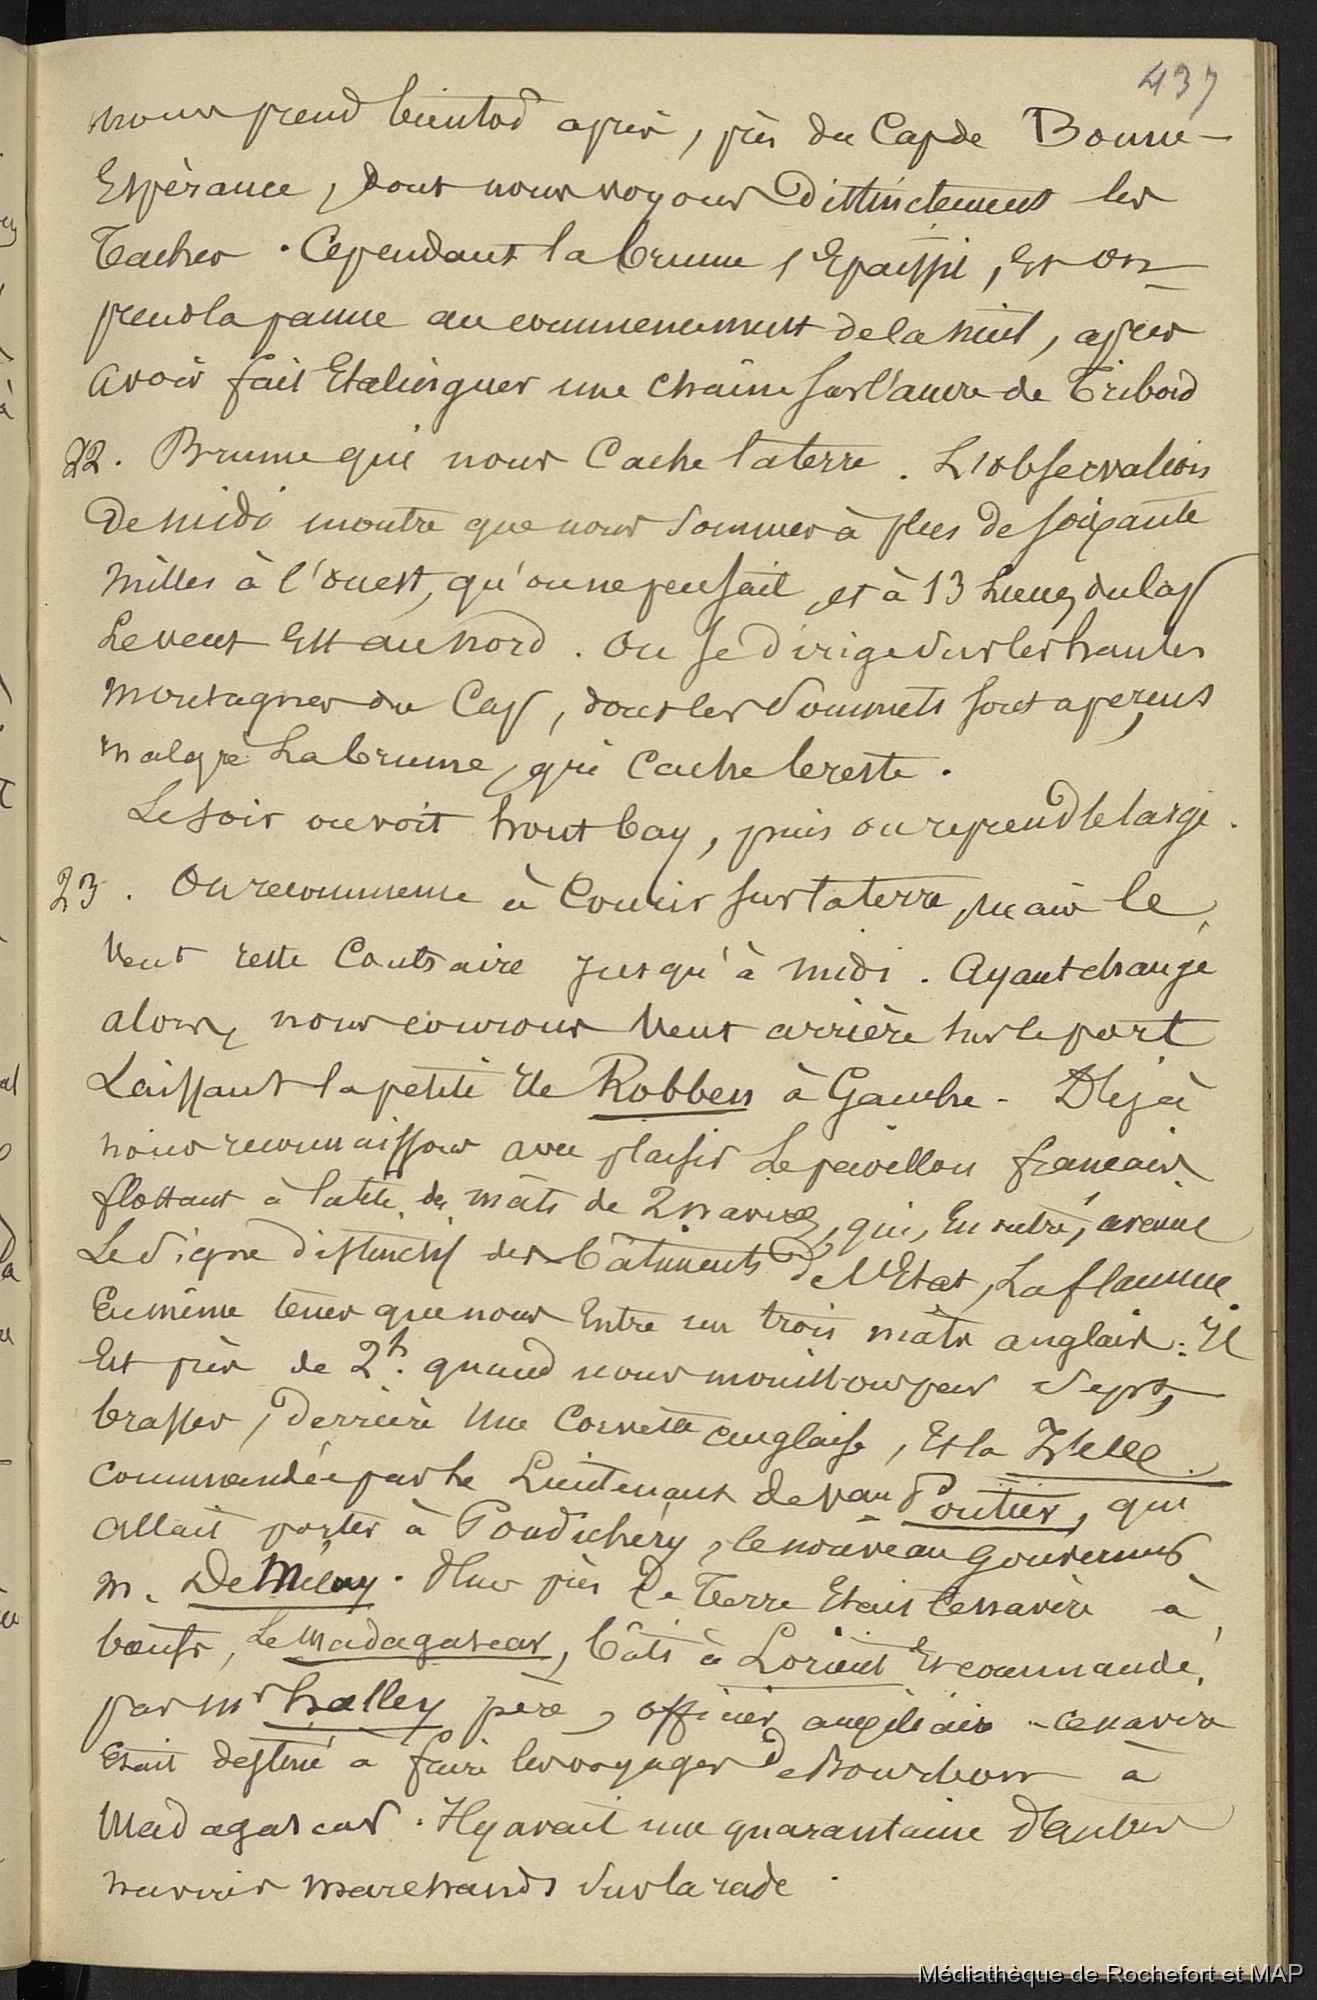 437
nous prend bientod après, près du Cap de Bonne-
Espérance, dont nous voyons Distinctement les
Taches. Cependant la brume s'Epaissit, Et on
prend la panne au commencement de la nuit, après
avoir fait Etalinguer une chaine sur l'ancre de Tribord
22. Brume qui nous Cache la terre. L'observation
De midi montre que nous sommes à plus de soixante
milles à l'ouest, qu'on ne pensait, et à 13 Lieues du Cap
Le vent Est au nord. On se dirige sur les hautes
montagnes du Cap, dont les sommets sont aperçus
malgré La brume, qui Cache le reste.
Le soir on voit hout bay, puis on reprend le large.
23. On recommence à Courir sur la terre, mais le
vent reste Contraire jusqu'à midi. Ayant changé
alors, nous courons vent arrière sur le port
Laissant la petite Ile Robben à Gauche. Déjà
nous reconnaissons avec plaisir Le pavillon francais
flottant à la tête des mâts de 2 navires, qui, En outre, avaient
Le signe distinctif des bâtiments de l'Etat, La flamme.
En même tems que nous Entre un trois mâts anglais. Il
Est près de 2h. quand nous mouillons par sept
brasses, Derrière une Corvette anglaise, Et la Isere
commandée par le Lieutenant de vau Poutier, qui
allait porter à Pondichéry, le nouveau Gouverneur
M. De Mélay. Plus près De Terre Etait le navire à
boeufs, Le Madagascar, bâti à Lorient Et commandé,
par Mr halley père, officier auxiliaire. ce navire
Etait destiné à faire les voyages de Bourbon à
Madagascar. Il y avait une quarantaine d'autres
navires marchands sur la rade.
Médiathèque de Rochefort et MAP